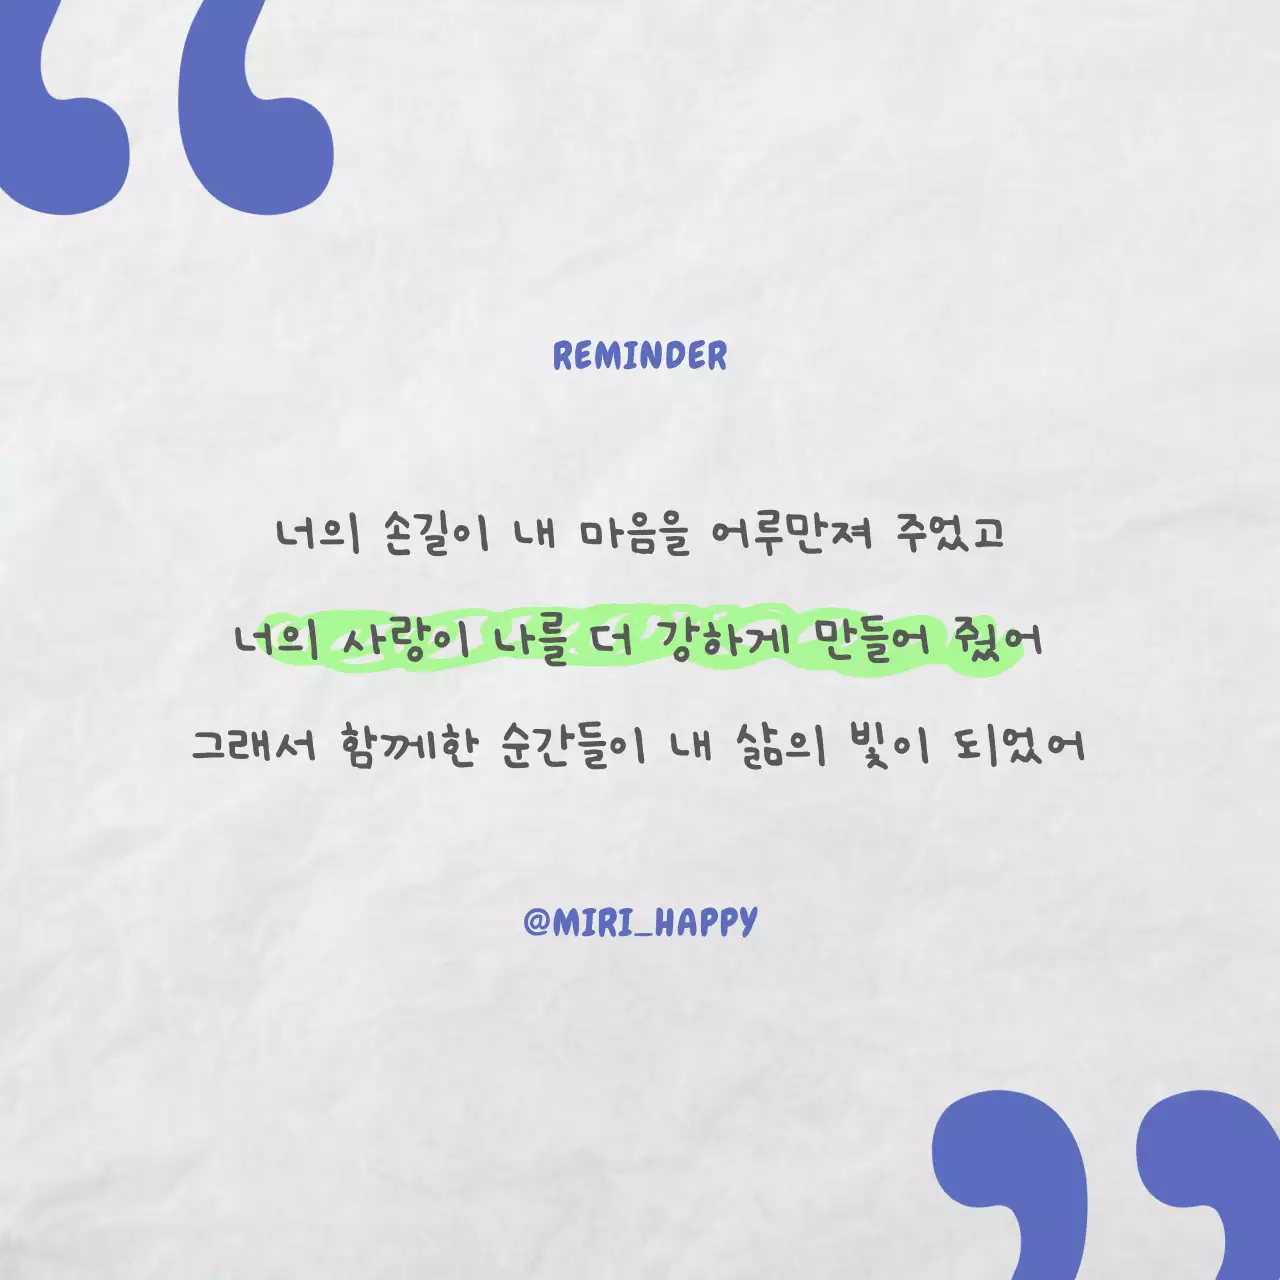 REMINDER
너의 손길이 내 마음을 어루만져 주었고
너의 사랑이 나를 더 강하게 만들어 줬어
그래서 함께한 순간들이 내 삶의 빛이 되었어
@MIRI_HAPPY